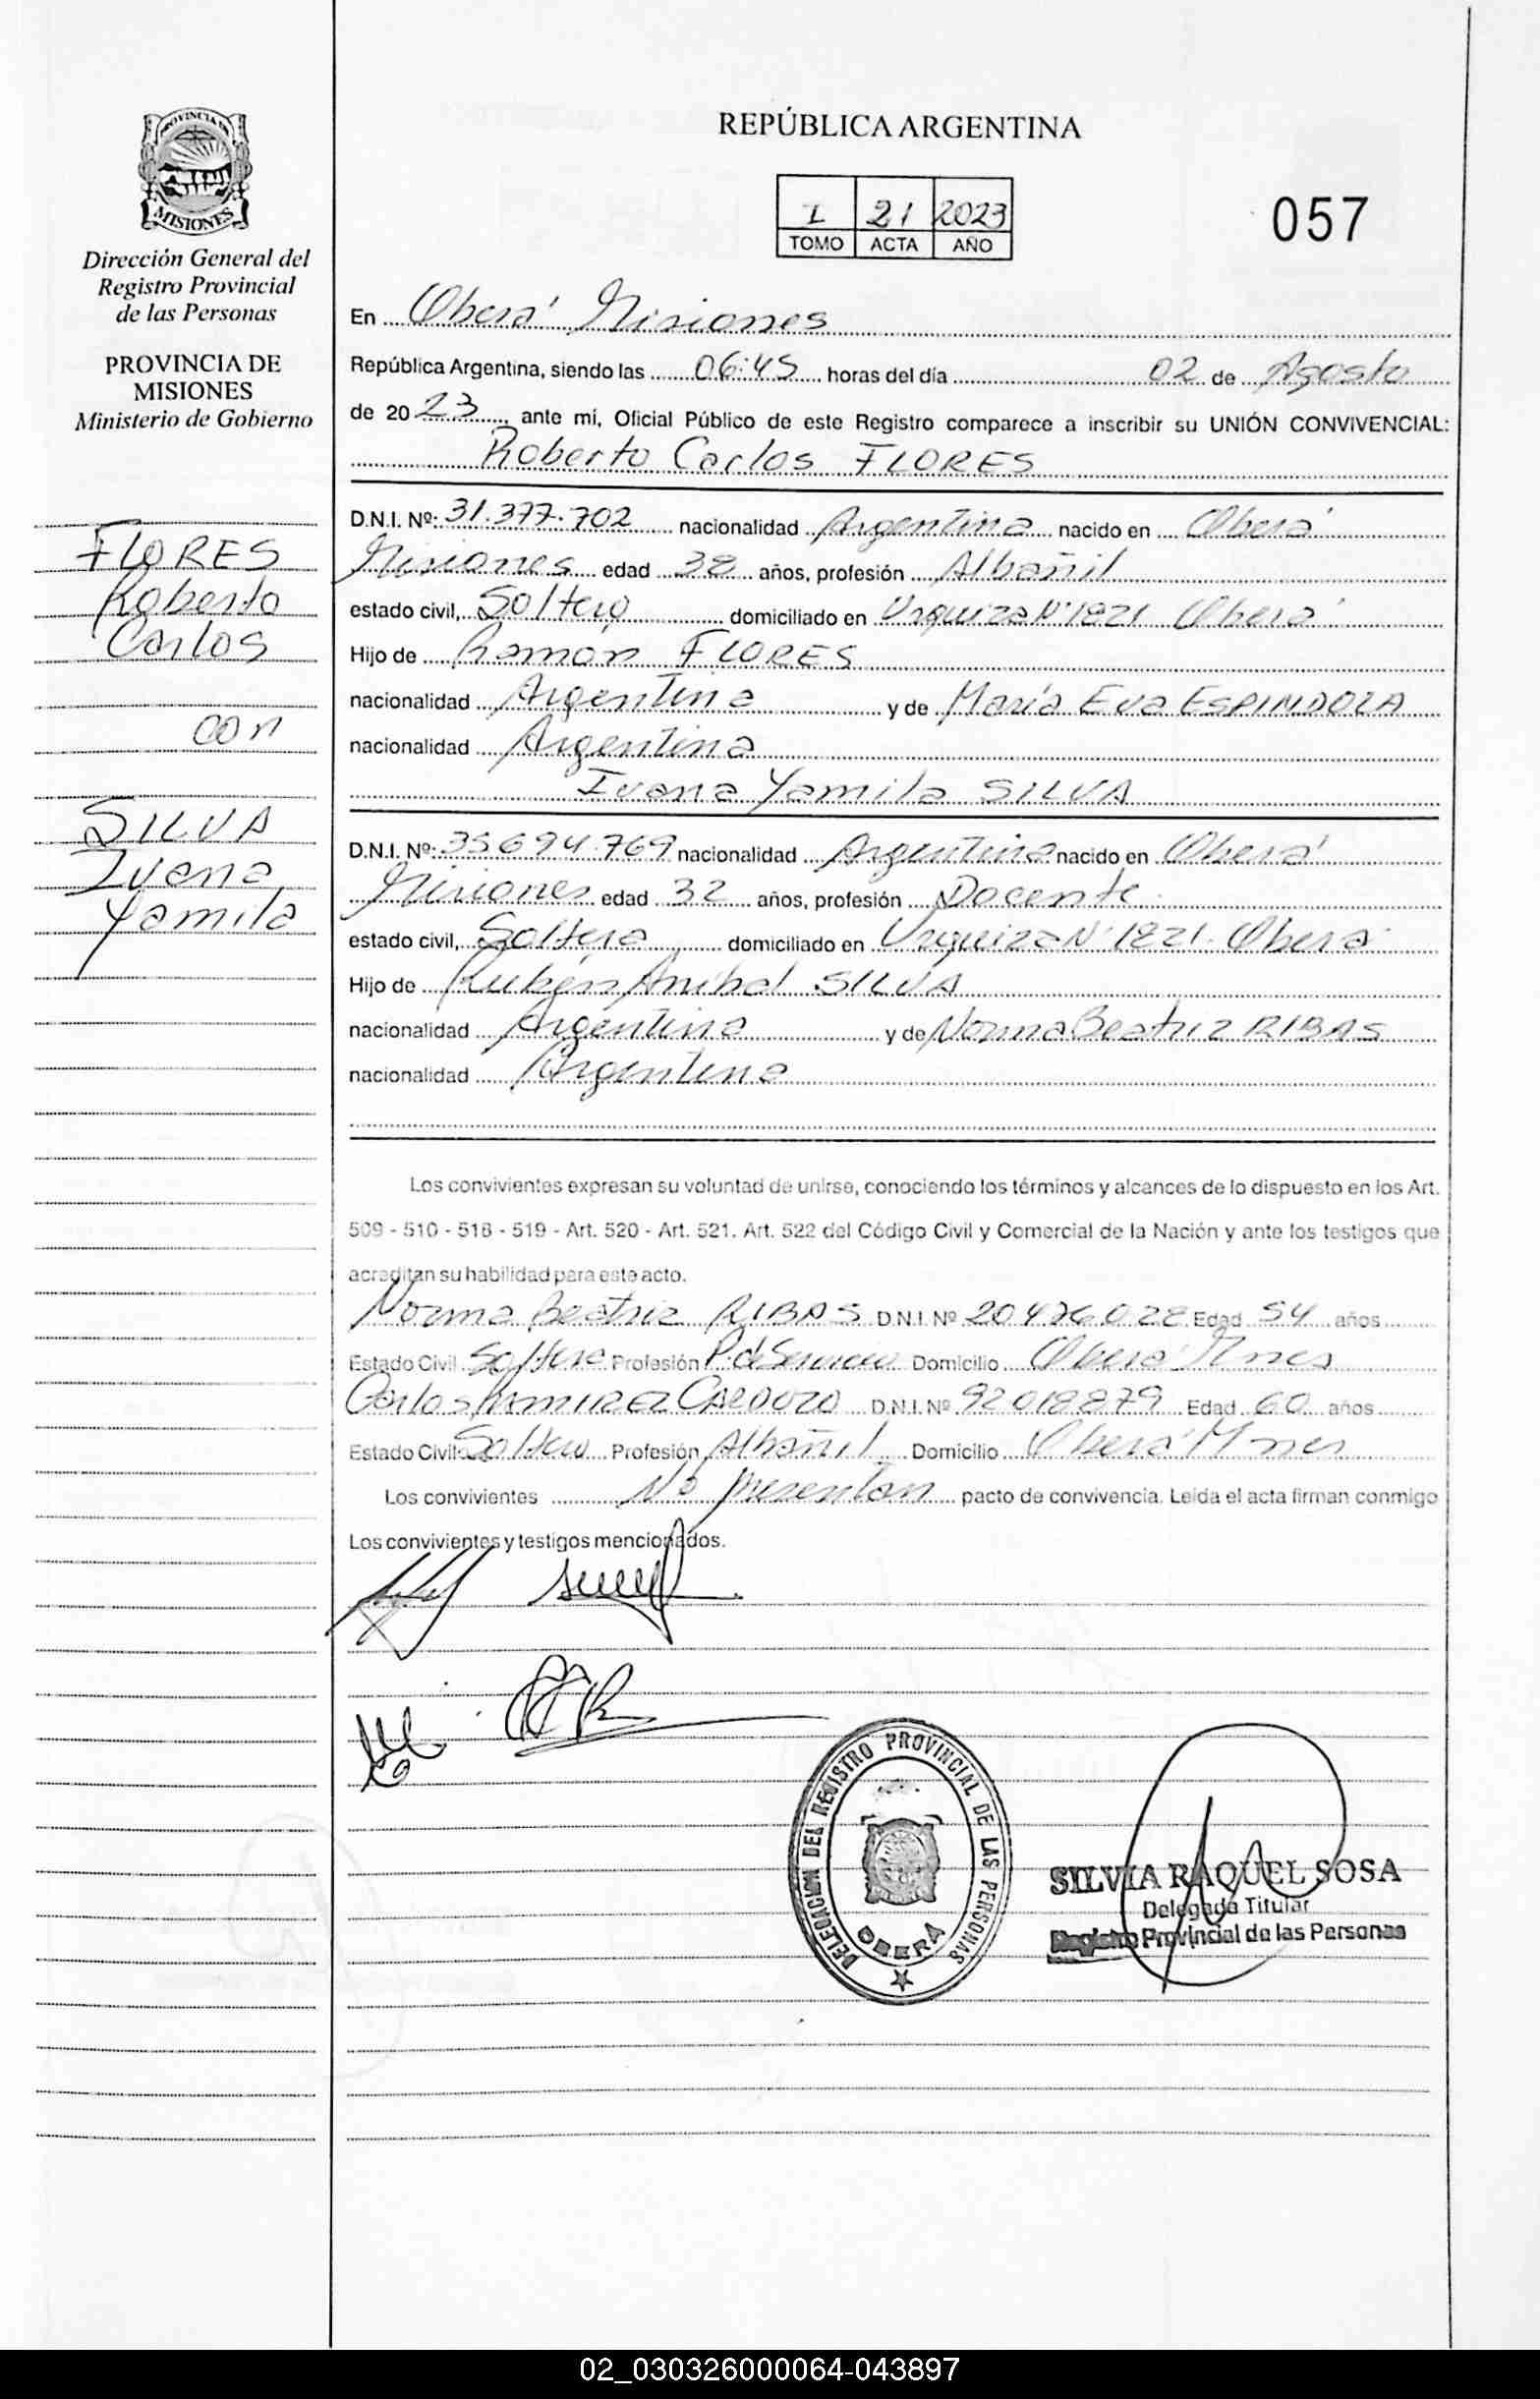 PROVINCIA DE
MISIONES
Dirección General del
Registro Provincial
de las Personas
PROVINCIA DE
MISIONES
Ministerio de Gobierno
FLORES
Roberto
Carlos
con
SILVA
Ivana
Yamila
REPÚBLICA ARGENTINA
I 21 2023
TOMO ACTA AÑO
057
En Oberá Misiones
República Argentina, siendo las 06:45 horas del día 02 de Agosto
de 2023, ante mí, Oficial Público de este Registro comparece a inscribir su UNIÓN CONVIVENCIAL:
Roberto Carlos FLORES
D.N.I. Nº: 31.377.702 nacionalidad Argentina nacido en Oberá
Misiones edad 38 años, profesión Albañil
estado civil, Soltero domiciliado en Urquiza Nº 1821 Oberá
Hijo de Ramón FLORES
nacionalidad Argentina y de María Eva ESPINDOLA
nacionalidad Argentina
Ivana Yamila SILVA
D.N.I. Nº: 35694.769 nacionalidad Argentina nacido en Oberá
Misiones edad 32 años, profesión Docente
estado civil, Soltera domiciliado en Urquiza Nº 1821. Oberá
Hijo de Rubén Anibal SILVA
nacionalidad Argentina y de Norma Beatriz RIBAS
nacionalidad Argentina
Los convivientes expresan su voluntad de unirse, conociendo los términos y alcances de lo dispuesto en los Art.
509 - 510 - 518 - 519 - Art. 520 - Art. 521. Art. 522 del Código Civil y Comercial de la Nación y ante los testigos que
acreditan su habilidad para este acto.
Norma Beatriz RIBAS D.N.I. Nº 20.476.028 Edad 54 años
Estado Civil Soltera Profesión P. de Servicio Domicilio Oberá Mnes
Carlos RAMIREZ CARDOZO D.N.I. Nº 92018879 Edad 60 años
Estado Civil Soltero Profesión Albañil Domicilio Oberá Mnes
Los convivientes No presentan pacto de convivencia. Leída el acta firman conmigo
Los convivientes y testigos mencionados.
DELEGACION DEL REGISTRO PROVINCIAL DE LAS PERSONAS
OBERA
SILVIA RAQUEL SOSA
Delegada Titular
Registro Provincial de las Personas
02_030326000064-043897